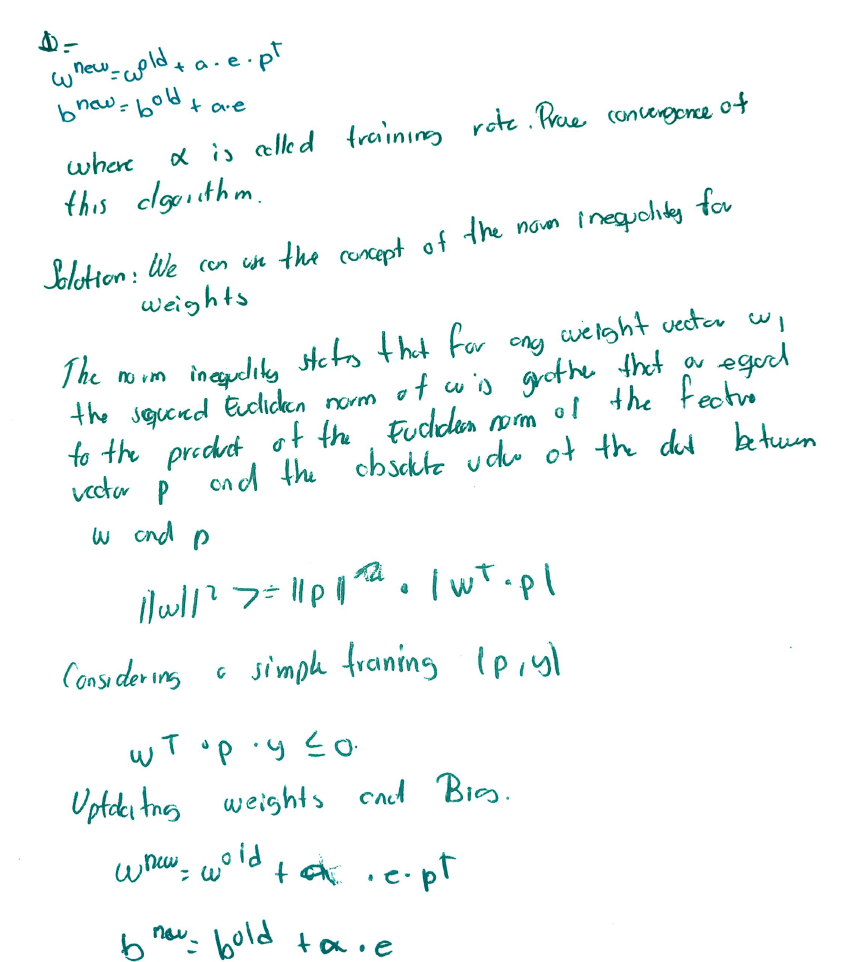 1=
w^new = w^old + a . e . p^T
b^new = b^old + a.e
where α is called training rate. Prove convergence of
this algorithm.
Solution: We can use the concept of the norm inequality for
weights
The norm inequality states that for any weight vector w,
the squared Euclidean norm of w is grather that or equal
to the product of the Euclidean norm of the feature
vector p and the absolute value of the dot between
w and p
||w||² >= ||p|| . |w^T . p|
Considering a simple traning (p, y)
w^T . p . y ≤ 0.
Uptdating weights and Bias.
w^new = w^old + α . e . p^T
b^new = b^old + α . e